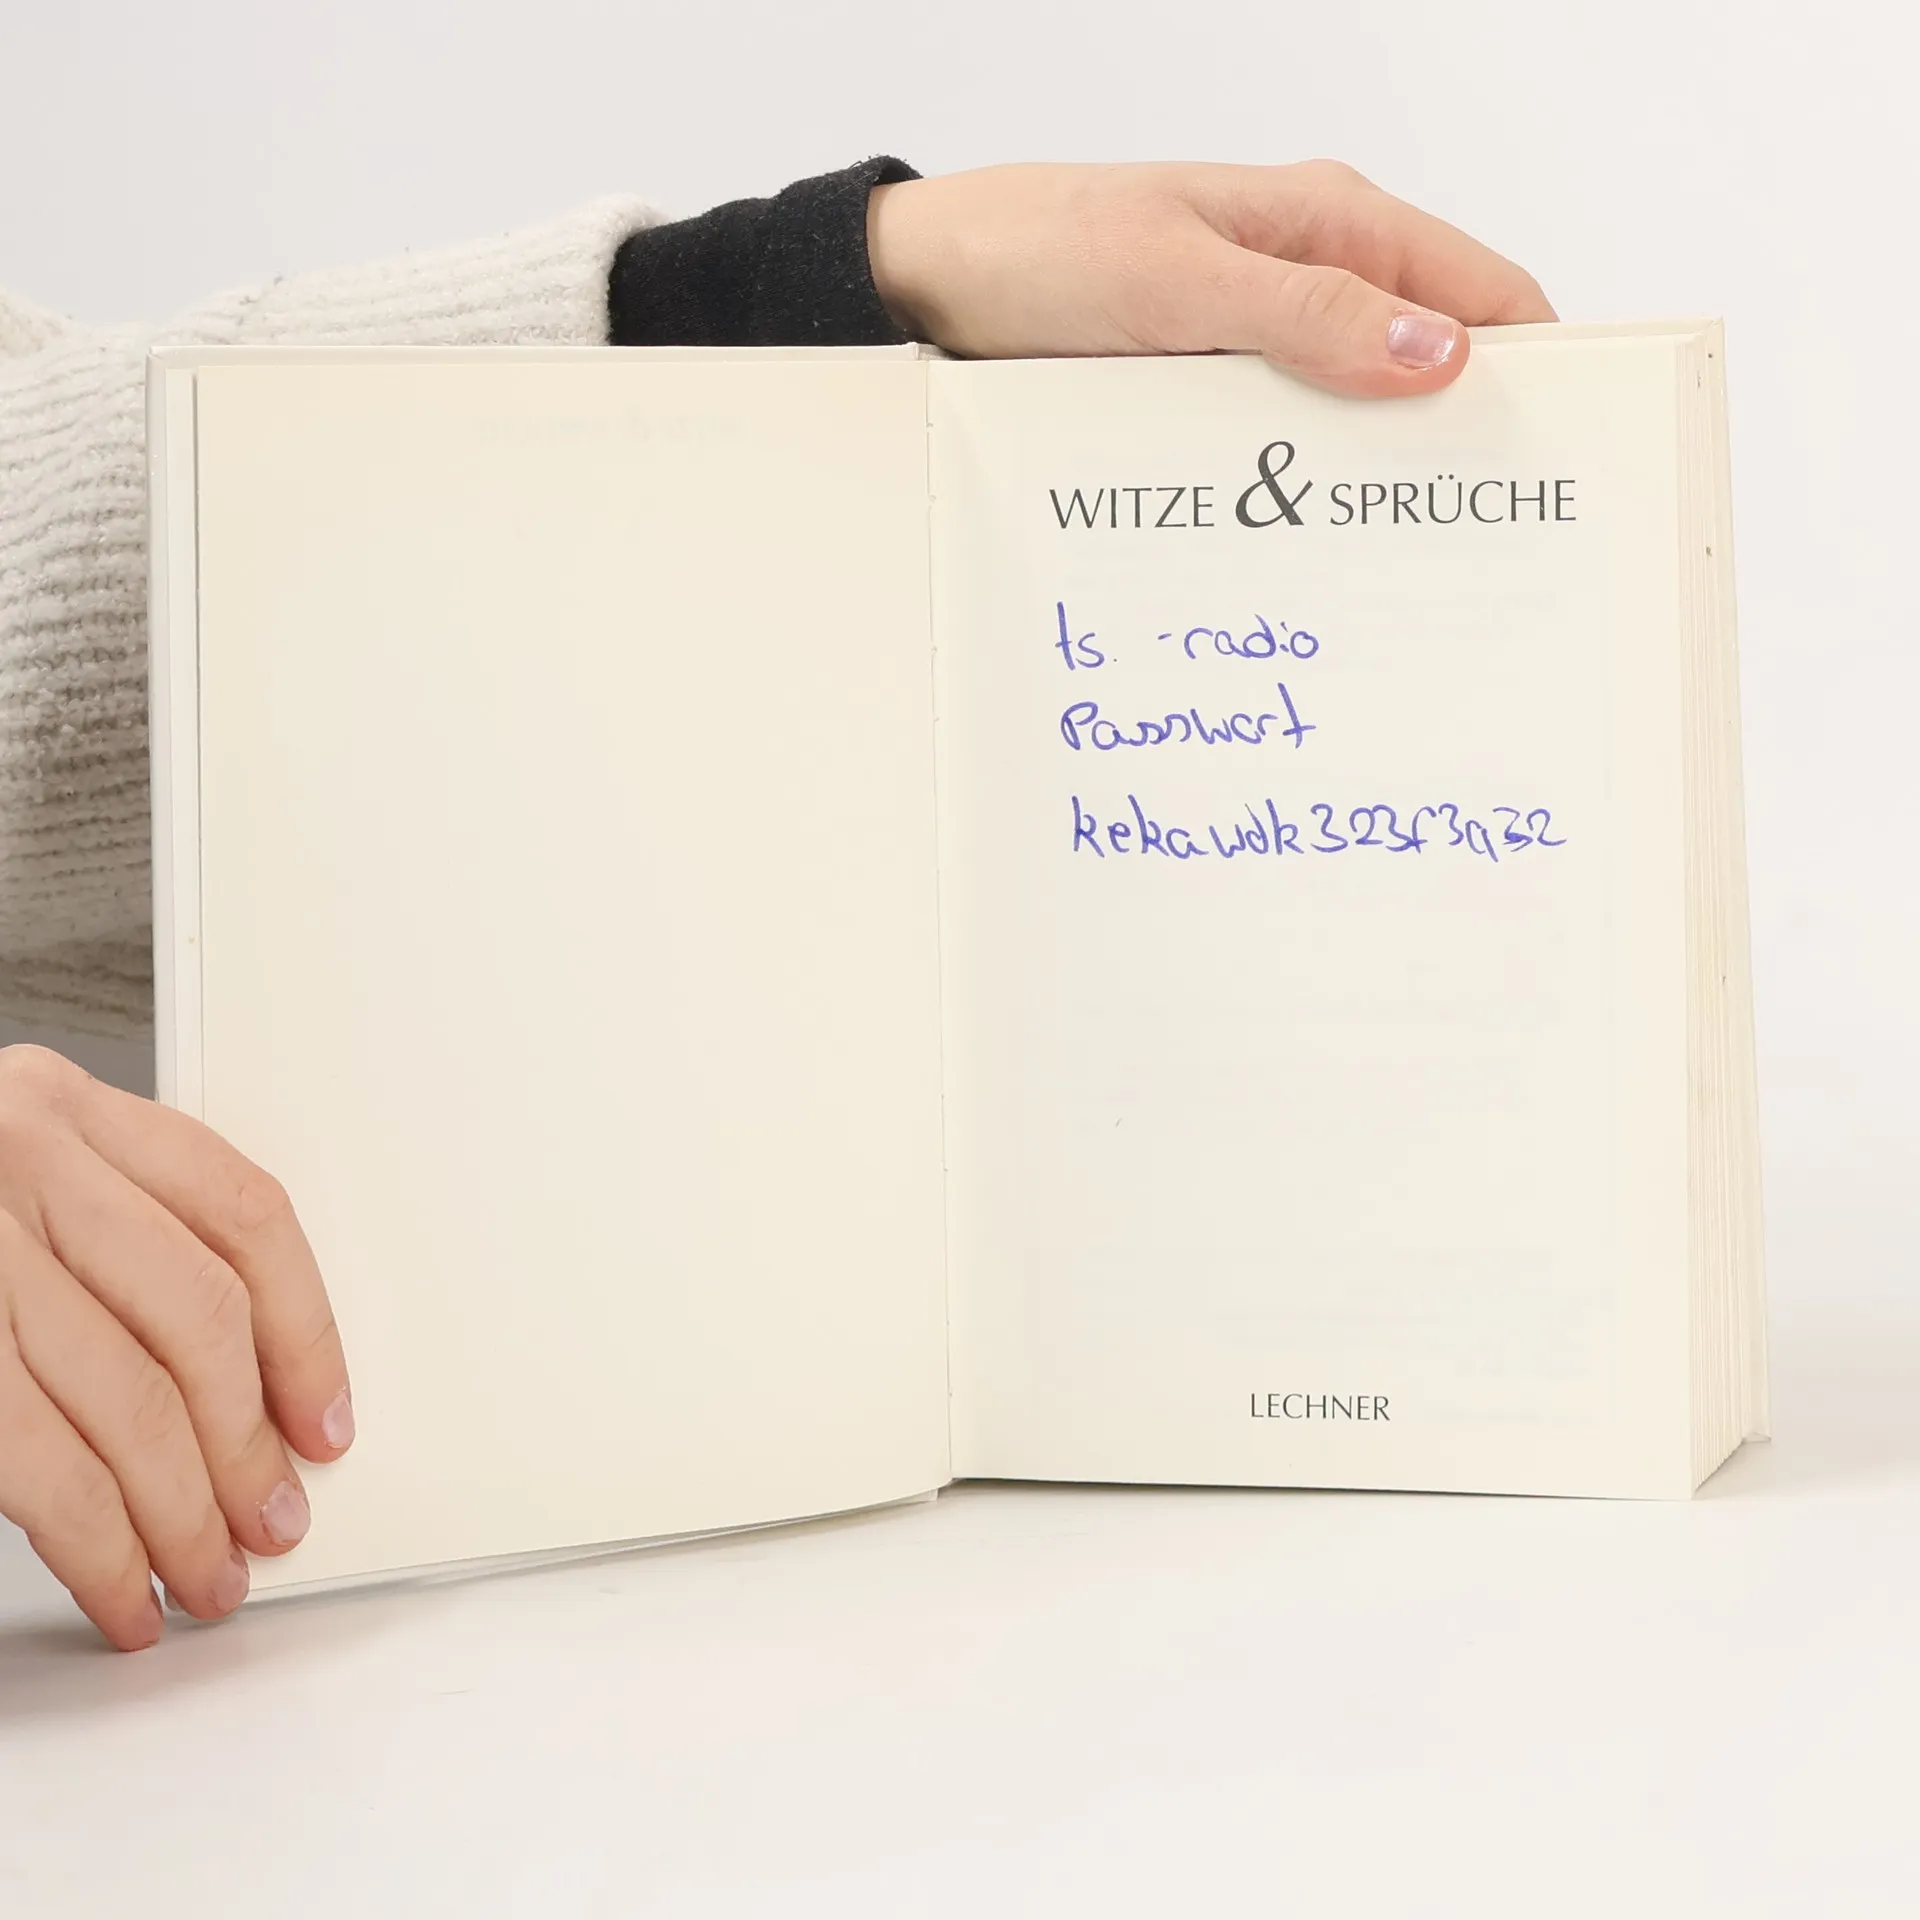 WITZE & SPRÜCHE
ts. -radio
Passwort
kekawdk323f3q32
LECHNER